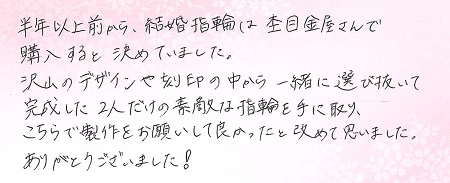 半年以上前から、結婚指輪は杢目金屋さんで
購入すると決めていました。
沢山のデザインや刻印の中から一緒に選び抜いて
完成した2人だけの素敵な指輪を手に取り、
こちらで製作をお願いして良かったと改めて思いました。
ありがとうございました!